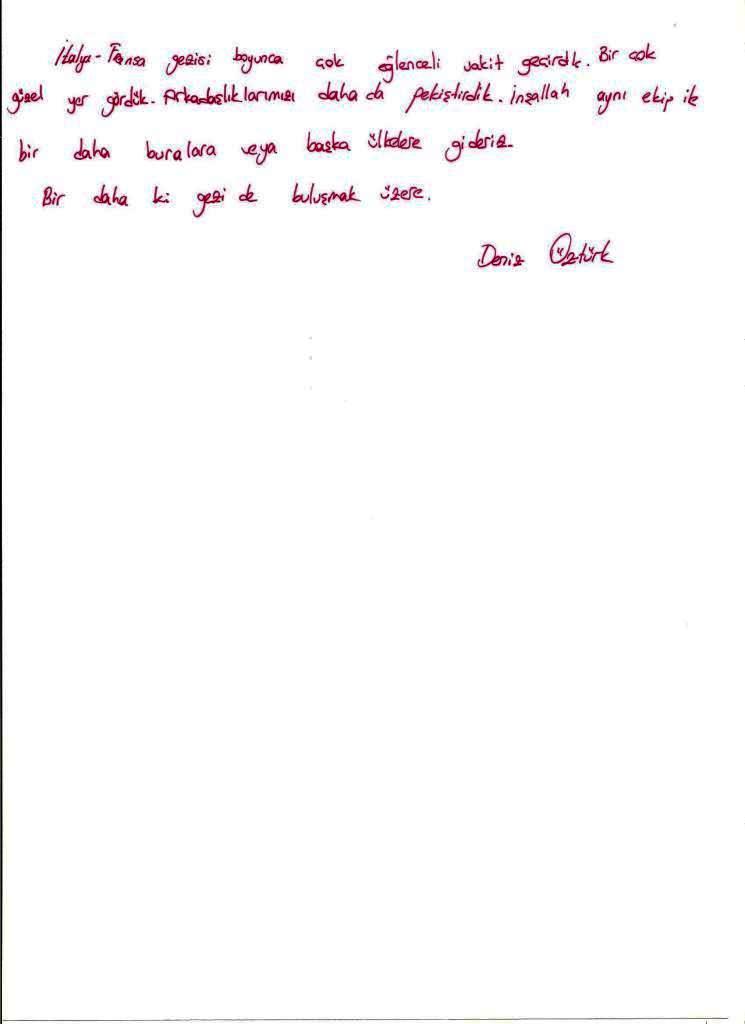 İtalya-Fransa gezisi boyunca çok eğlenceli vakit geçirdik. Bir çok
güzel yer gördük. Arkadaşlıklarımızı daha da pekiştirdik. İnşallah aynı ekip ile
bir daha buralara veya başka ülkelere gideriz.
Bir daha ki gezi de buluşmak üzere.
Deniz Öztürk